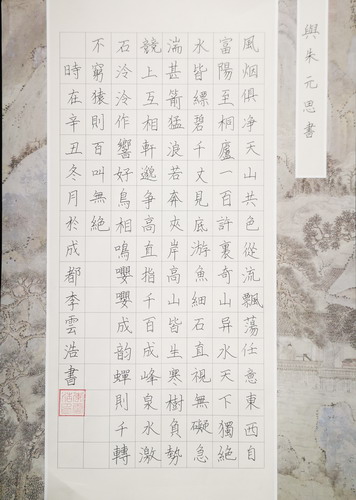 與朱元思書
風烟俱净天山共色從流飄蕩任意東西自
富陽至桐廬一百許裏奇山异水天下獨絕
水皆縹碧千丈見底游魚細石直視無礙急
湍甚箭猛浪若奔夾岸高山皆生寒樹負勢
競上互相軒邈争高直指千百成峰泉水激
石泠泠作響好鳥相鳴嚶嚶成韵蟬則千轉
不窮猿則百叫無絕
時在辛丑冬月於成都李雲浩書